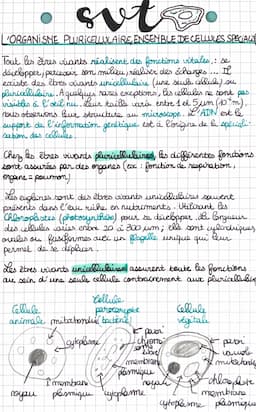 svt
L'ORGANISME PLURICELLULAIRE, ENSEMBLE DE CELLULES SPÉCIALI
Tous les êtres vivants réalisent des fonctions vitales : se
développer, percevoir son milieu, réaliser des échanges ... Il
existe des êtres vivants unicellulaire (une seule cellule) ou
pluricellulaire. A quelques rares exceptions, les cellules ne sont pas
visibles à l'œil nu. Leur taille varie entre 1 et 5 µm
nous observons leur structure au microscope. L'ADN est le
support de l'information génétique est à l'origine de la spéciali-
sation des cellules.
Chez les êtres vivants pluricellulaires, les différentes fonctions
sont assurées par des organes (ex : fonction de respiration,
organe = poumon)
Les euglènes sont des êtres vivants unicellulaires souvent
présents dans l'eau riche en nutriments. Utilisant les
Chloroplastes (photosynthèse) pour se développer. La longueur
des cellules varies entre 20 à 300 µm ; elles sont cylindriques,
ovales ou fusiformes avec un flagelle unique qui leur
permet de se déplacer.
Les êtres vivants unicellulaires assurent toute les fonctions
au sein d'une seule cellule contrairement aux pluricellulair
Cellule animale
Cellule procaryote (bactérie)
Cellule végétale
mitochondrie
cytoplasme
membrane plasmique
noyau
paroi
membrane plasmique
cytoplasme
paroi
vacuole
mitochondrie
chloroplaste
membrane plasmique
noyau
cytoplasme